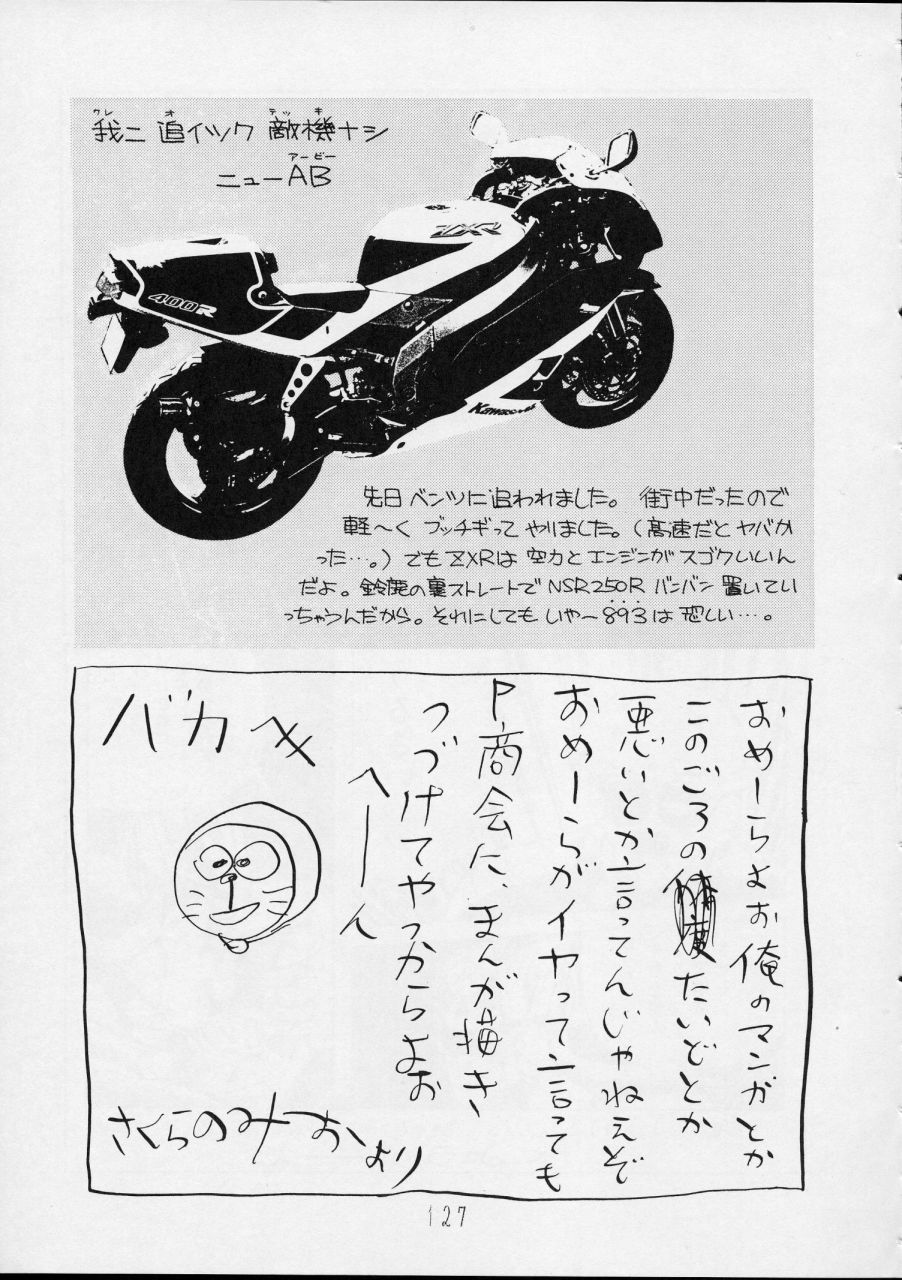 我ニ 追イツク 敵機ナシ
ニューAB
ZXR
400R
Kawasaki
先日ベンツに追われました。 街中だったので
軽〜く ブッチギって やりました。(高速だと ヤバか
った…。)でもZXRは 空力とエンジンが スゴクいいん
だよ。鈴鹿の裏ストレートで NSR250R バンバン 置いてい
っちゃうんだから。それにしても いやー893は 恐しい…。
おめーらよお俺のマンガとか
このごろの たいどとか
悪いとか言ってんじゃねえぞ
おめーらがイヤって言っても
P.商会に、まんが描き
つづけてやっからよお
へーん
バカめ
さくらのみおより
127